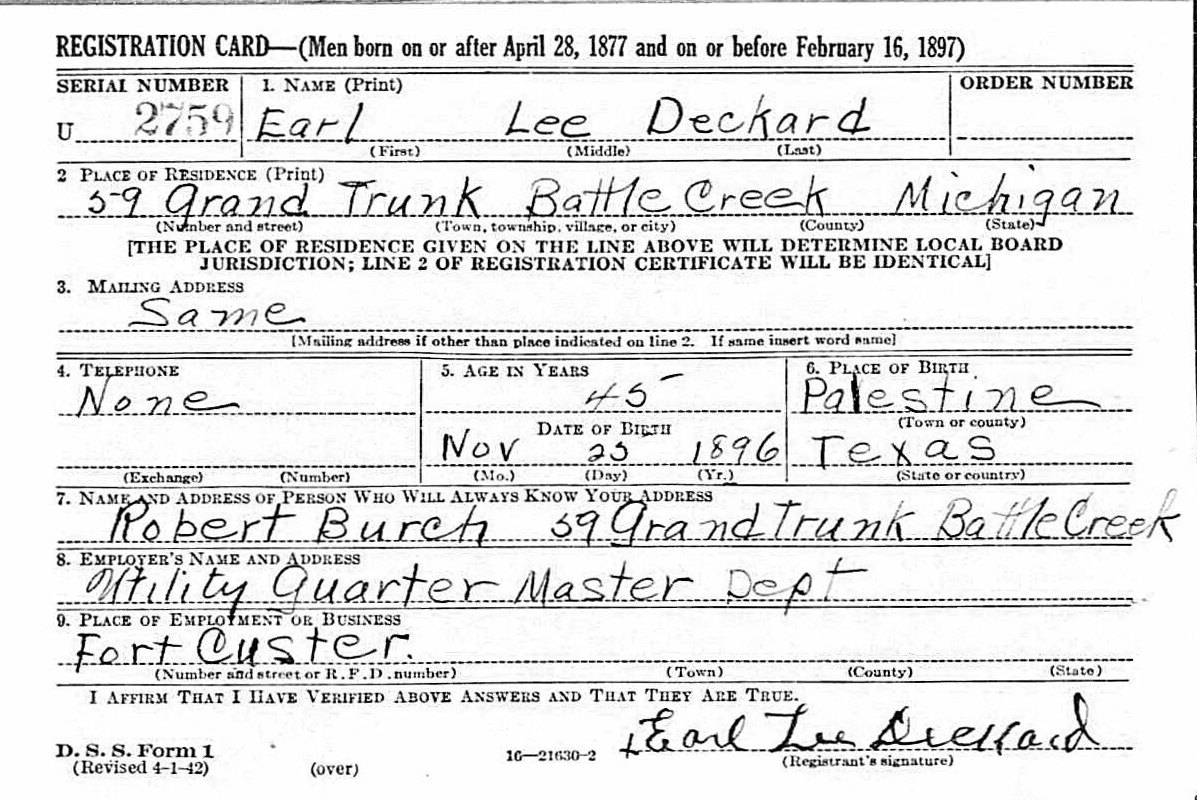 REGISTRATION CARD—(Men born on or after April 28, 1877 and on or before February 16, 1897)
SERIAL NUMBER 1. NAME (Print) ORDER NUMBER
U 2759 Earl Lee Deckard
(First) (Middle) (Last)
2 PLACE OF RESIDENCE (Print)
59 Grand Trunk Battle Creek Michigan
(Number and street) (Town, township, village, or city) (County) (State)
[THE PLACE OF RESIDENCE GIVEN ON THE LINE ABOVE WILL DETERMINE LOCAL BOARD
JURISDICTION; LINE 2 OF REGISTRATION CERTIFICATE WILL BE IDENTICAL]
3. MAILING ADDRESS
Same
[Mailing address if other than place indicated on line 2. If same insert word same]
4. TELEPHONE 5. AGE IN YEARS 6. PLACE OF BIRTH
None 45 Palestine
DATE OF BIRTH (Town or county)
Nov 25 1896 Texas
(Exchange) (Number) (Mo.) (Day) (Yr.) (State or country)
7. NAME AND ADDRESS OF PERSON WHO WILL ALWAYS KNOW YOUR ADDRESS
Robert Burch 59 Grand Trunk Battle Creek
8. EMPLOYER'S NAME AND ADDRESS
Utility Quarter Master Dept
9. PLACE OF EMPLOYMENT OR BUSINESS
Fort Custer.
(Number and street or R. F. D. number) (Town) (County) (State)
I AFFIRM THAT I HAVE VERIFIED ABOVE ANSWERS AND THAT THEY ARE TRUE.
Earl Lee Deckard
D. S. S. Form 1
(Revised 4-1-42) (over) 16—21630-2 (Registrant's signature)